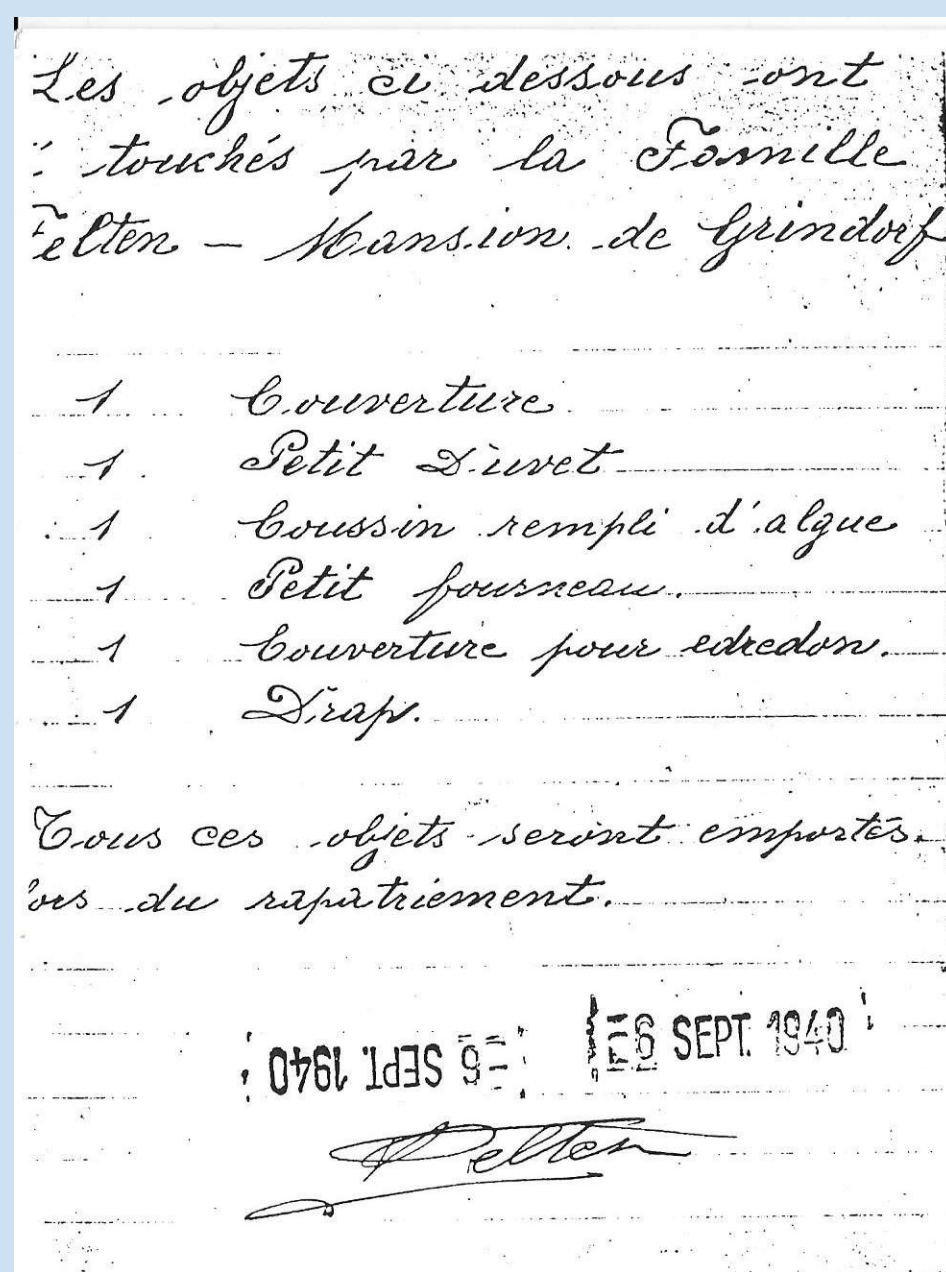 Les objets ci dessous ont
touchés par la Famille
Felten - Mansion de Grindorf
1 Couverture
1 Petit Duvet
1 Coussin rempli d'algue
1 Petit fourneau.
1 Couverture pour edredon.
1 Drap.
Tous ces objets seront emportés
lors du rapatriement.
6 SEPT. 1940
6 SEPT. 1940
Felten